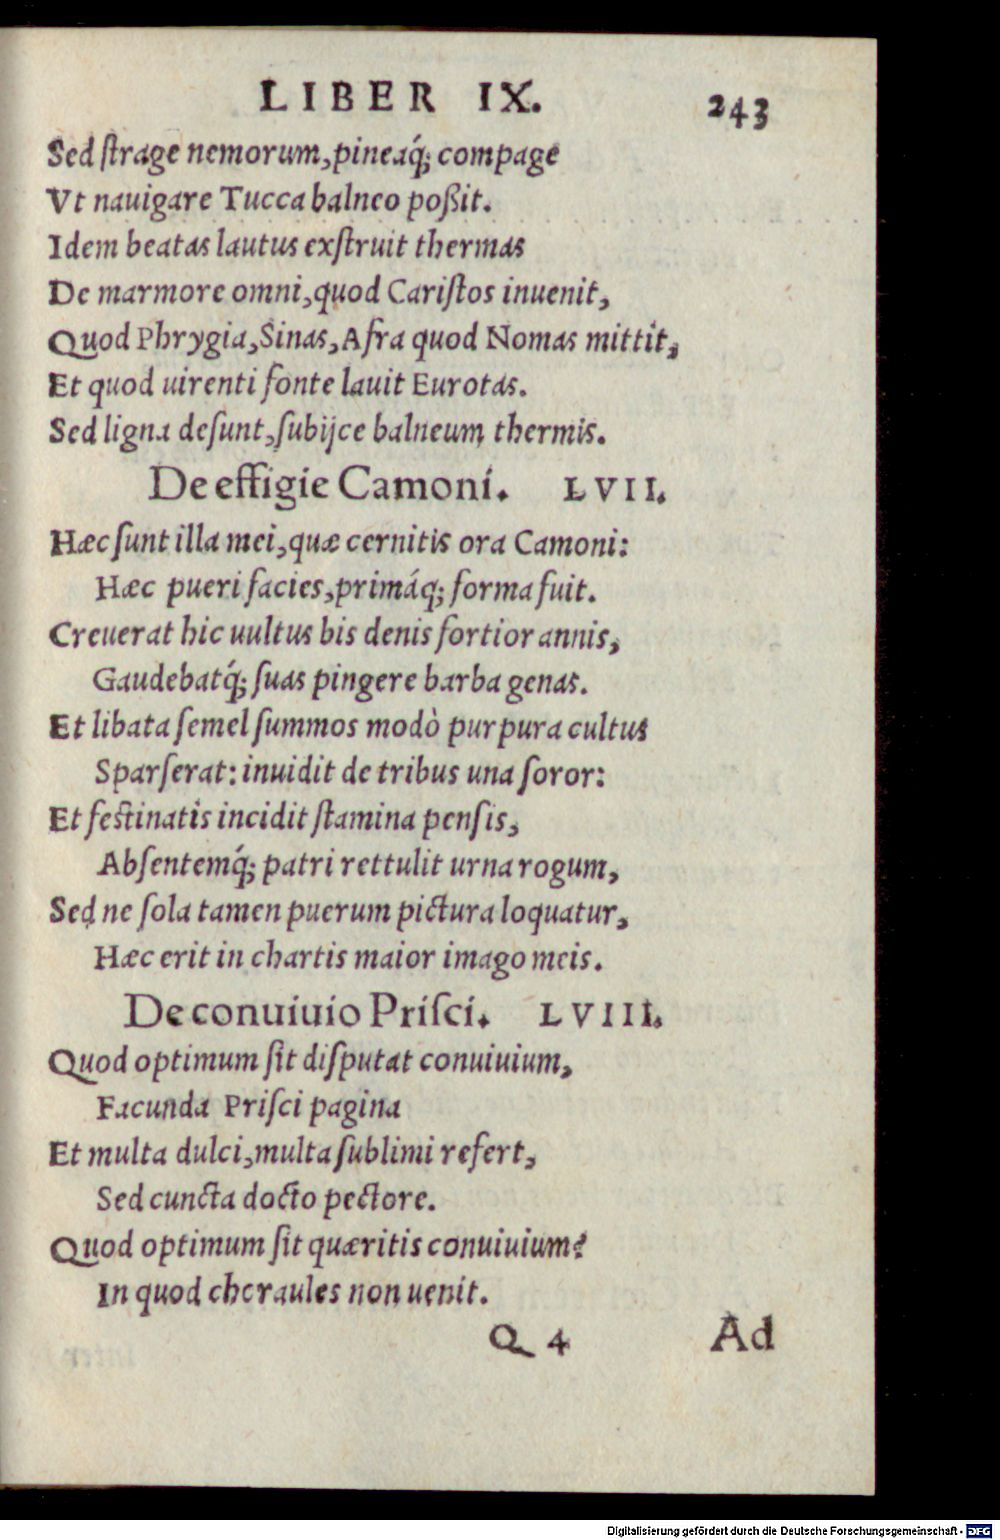 LIBER IX. 243
Sed ſtrage nemorum, pineaq́; compage
Vt nauigare Tucca balneo poßit.
Idem beatas lautus exſtruit thermas
De marmore omni, quod Cariſtos inuenit,
Quod Phrygia, Sinas, Afra quod Nomas mittit,
Et quod uirenti fonte lauit Eurotas.
Sed ligna deſunt, ſubijce balneum thermis.
De effigie Camoni. LVII.
Hæc ſunt illa mei, quæ cernitis ora Camoni:
Hæc pueri facies, primáq; forma fuit.
Creuerat hic uultus bis denis fortior annis,
Gaudebatq́; ſuas pingere barba genas.
Et libata ſemel ſummos modò purpura cultus
Sparſerat: inuidit de tribus una ſoror:
Et feſtinatis incidit ſtamina penſis,
Abſentemq́; patri rettulit urna rogum,
Sed ne ſola tamen puerum pictura loquatur,
Hæc erit in chartis maior imago meis.
De conuiuio Priſci. LVIII.
Quod optimum ſit diſputat conuiuium,
Facunda Priſci pagina
Et multa dulci, multa ſublimi refert,
Sed cuncta docto pectore.
Quod optimum ſit quæritis conuiuium?
In quod cheraules non uenit.
Q 4 Ad
Digitalisierung gefördert durch die Deutsche Forschungsgemeinschaft - DFG